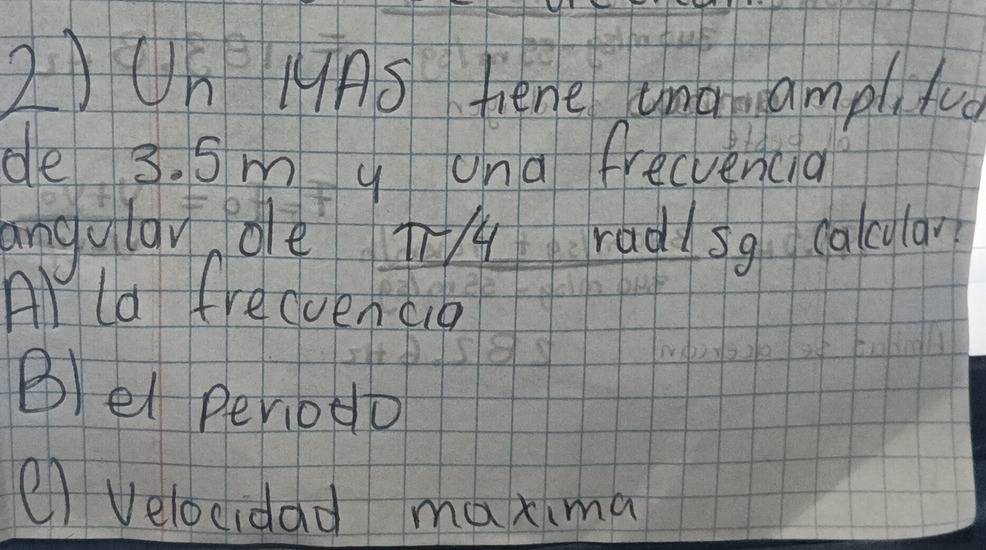 2) Un MAS tiene una amplitud
de 3.5 m y una frecuencia
angular de π/4 rad/sg calcular:
A) la frecuencia
B) el Periodo
C) Velocidad maxima